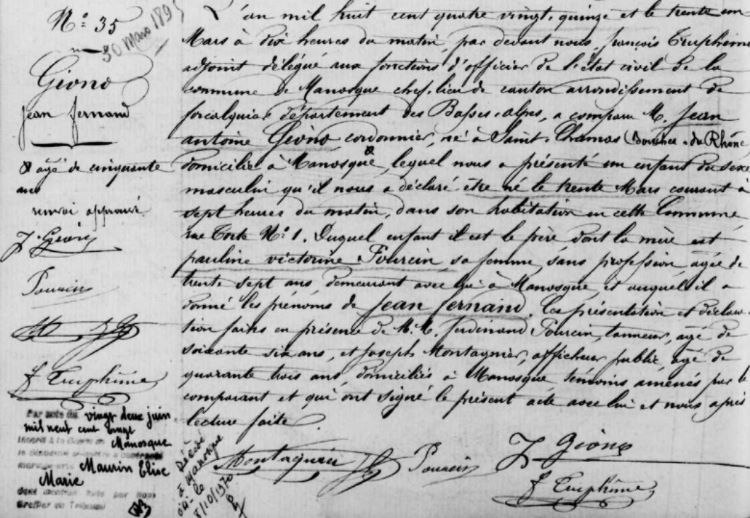 N° 35
30 Mars 1895
Giono
Jean Fernand
& agé de cinquante
ans
renvoi approuvé
J. Giono
Pourcin
F. Truphème
Par acte du vingt deux juin
mil neuf cent vingt
Manosque
Maurin Elise
Marie
L'an mil huit cent quatre vingt quinze et le trente un
Mars à dix heures du matin, par devant nous, françois Truphème
adjoint délégué aux fonctions d'officier de l'état civil de la
commune de Manosque chef-lieu de canton arrondissement de
forcalquier département des Basses-alpes, a comparu M. Jean
antoine Giono cordonnier, né à Saint-Chamas (Bouches-du-Rhône
domicilié à Manosque & lequel nous a présenté un enfant du sexe
masculin qu'il nous a déclaré être né le trente Mars courant à
sept heures du matin, dans son habitation en cette Commune
rue Torte N° 1. Duquel enfant il est le père dont la mère est
pauline victorine Pourcin sa femme, sans profession, agée de
trente sept ans, demeurant avec lui à Manosque et auquel il a
donné les prénoms de Jean fernand. Ces présentation et déclara-
tion faites en présence de M.M. ferdinand Pourcin, tanneur, agé de
soixante six ans, et Joseph Montagnier, afficheur public agé de
quarante trois ans, domiciliés à Manosque témoins amenés par le
comparant et qui ont signé le présent acte avec lui et nous après
lecture faite.
Décédé
à Manosque
le
/10/1970
Montagnier
Pourcin
J Giono
F. Truphème